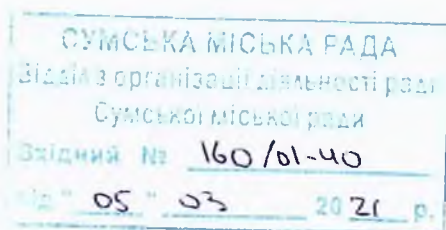 СУМСЬКА МІСЬКА РАДА
Відділ з організації діяльності ради
Сумської міської ради
Вхідний № 160/01-40
від " 05 " 03 20 21 р.